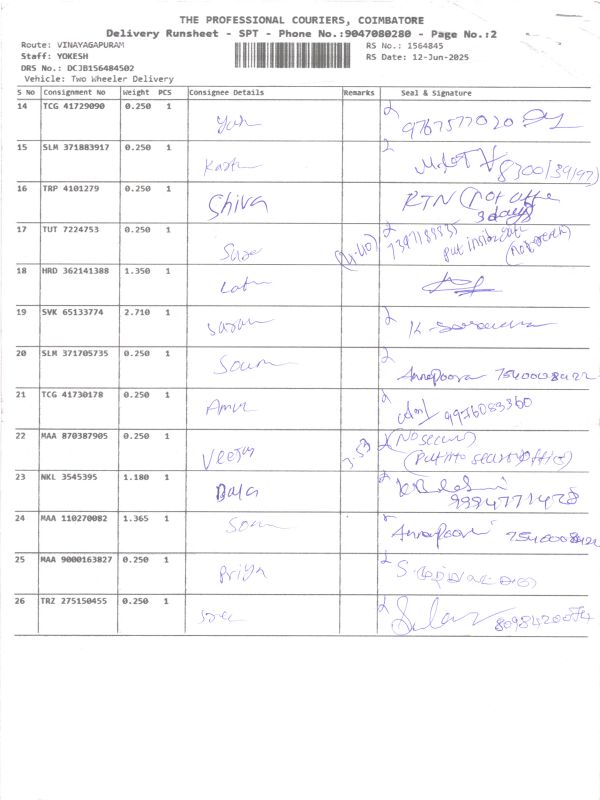 THE PROFESSIONAL COURIERS, COIMBATORE
Delivery Runsheet - SPT - Phone No.:9047080280 - Page No.:2
Route: VINAYAGAPURAM RS No.: 1564845
Staff: YOKESH RS Date: 12-Jun-2025
DRS No.: DCJB156484502
Vehicle: Two Wheeler Delivery
S No Consignment No Weight PCS Consignee Details Remarks Seal & Signature
14 TCG 41729090 0.250 1 9767577020
15 SLM 371883917 0.250 1
16 TRP 4101279 0.250 1 Shiva RTN (Not office
3 days)
17 TUT 7224753 0.250 1 7397188835
put inside
18 HRD 362141388 1.350 1
19 SVK 65133774 2.710 1 Saran
20 SLM 371705735 0.250 1 Soum 7540008422
21 TCG 41730178 0.250 1 9976083360
22 MAA 870387905 0.250 1 Veejay 3.53 (No security)
(Put into security office)
23 NKL 3545395 1.180 1 Bala 9994771428
24 MAA 110270082 1.365 1 Soum 7540008422
25 MAA 9000163827 0.250 1 Priya
26 TRZ 275150455 0.250 1